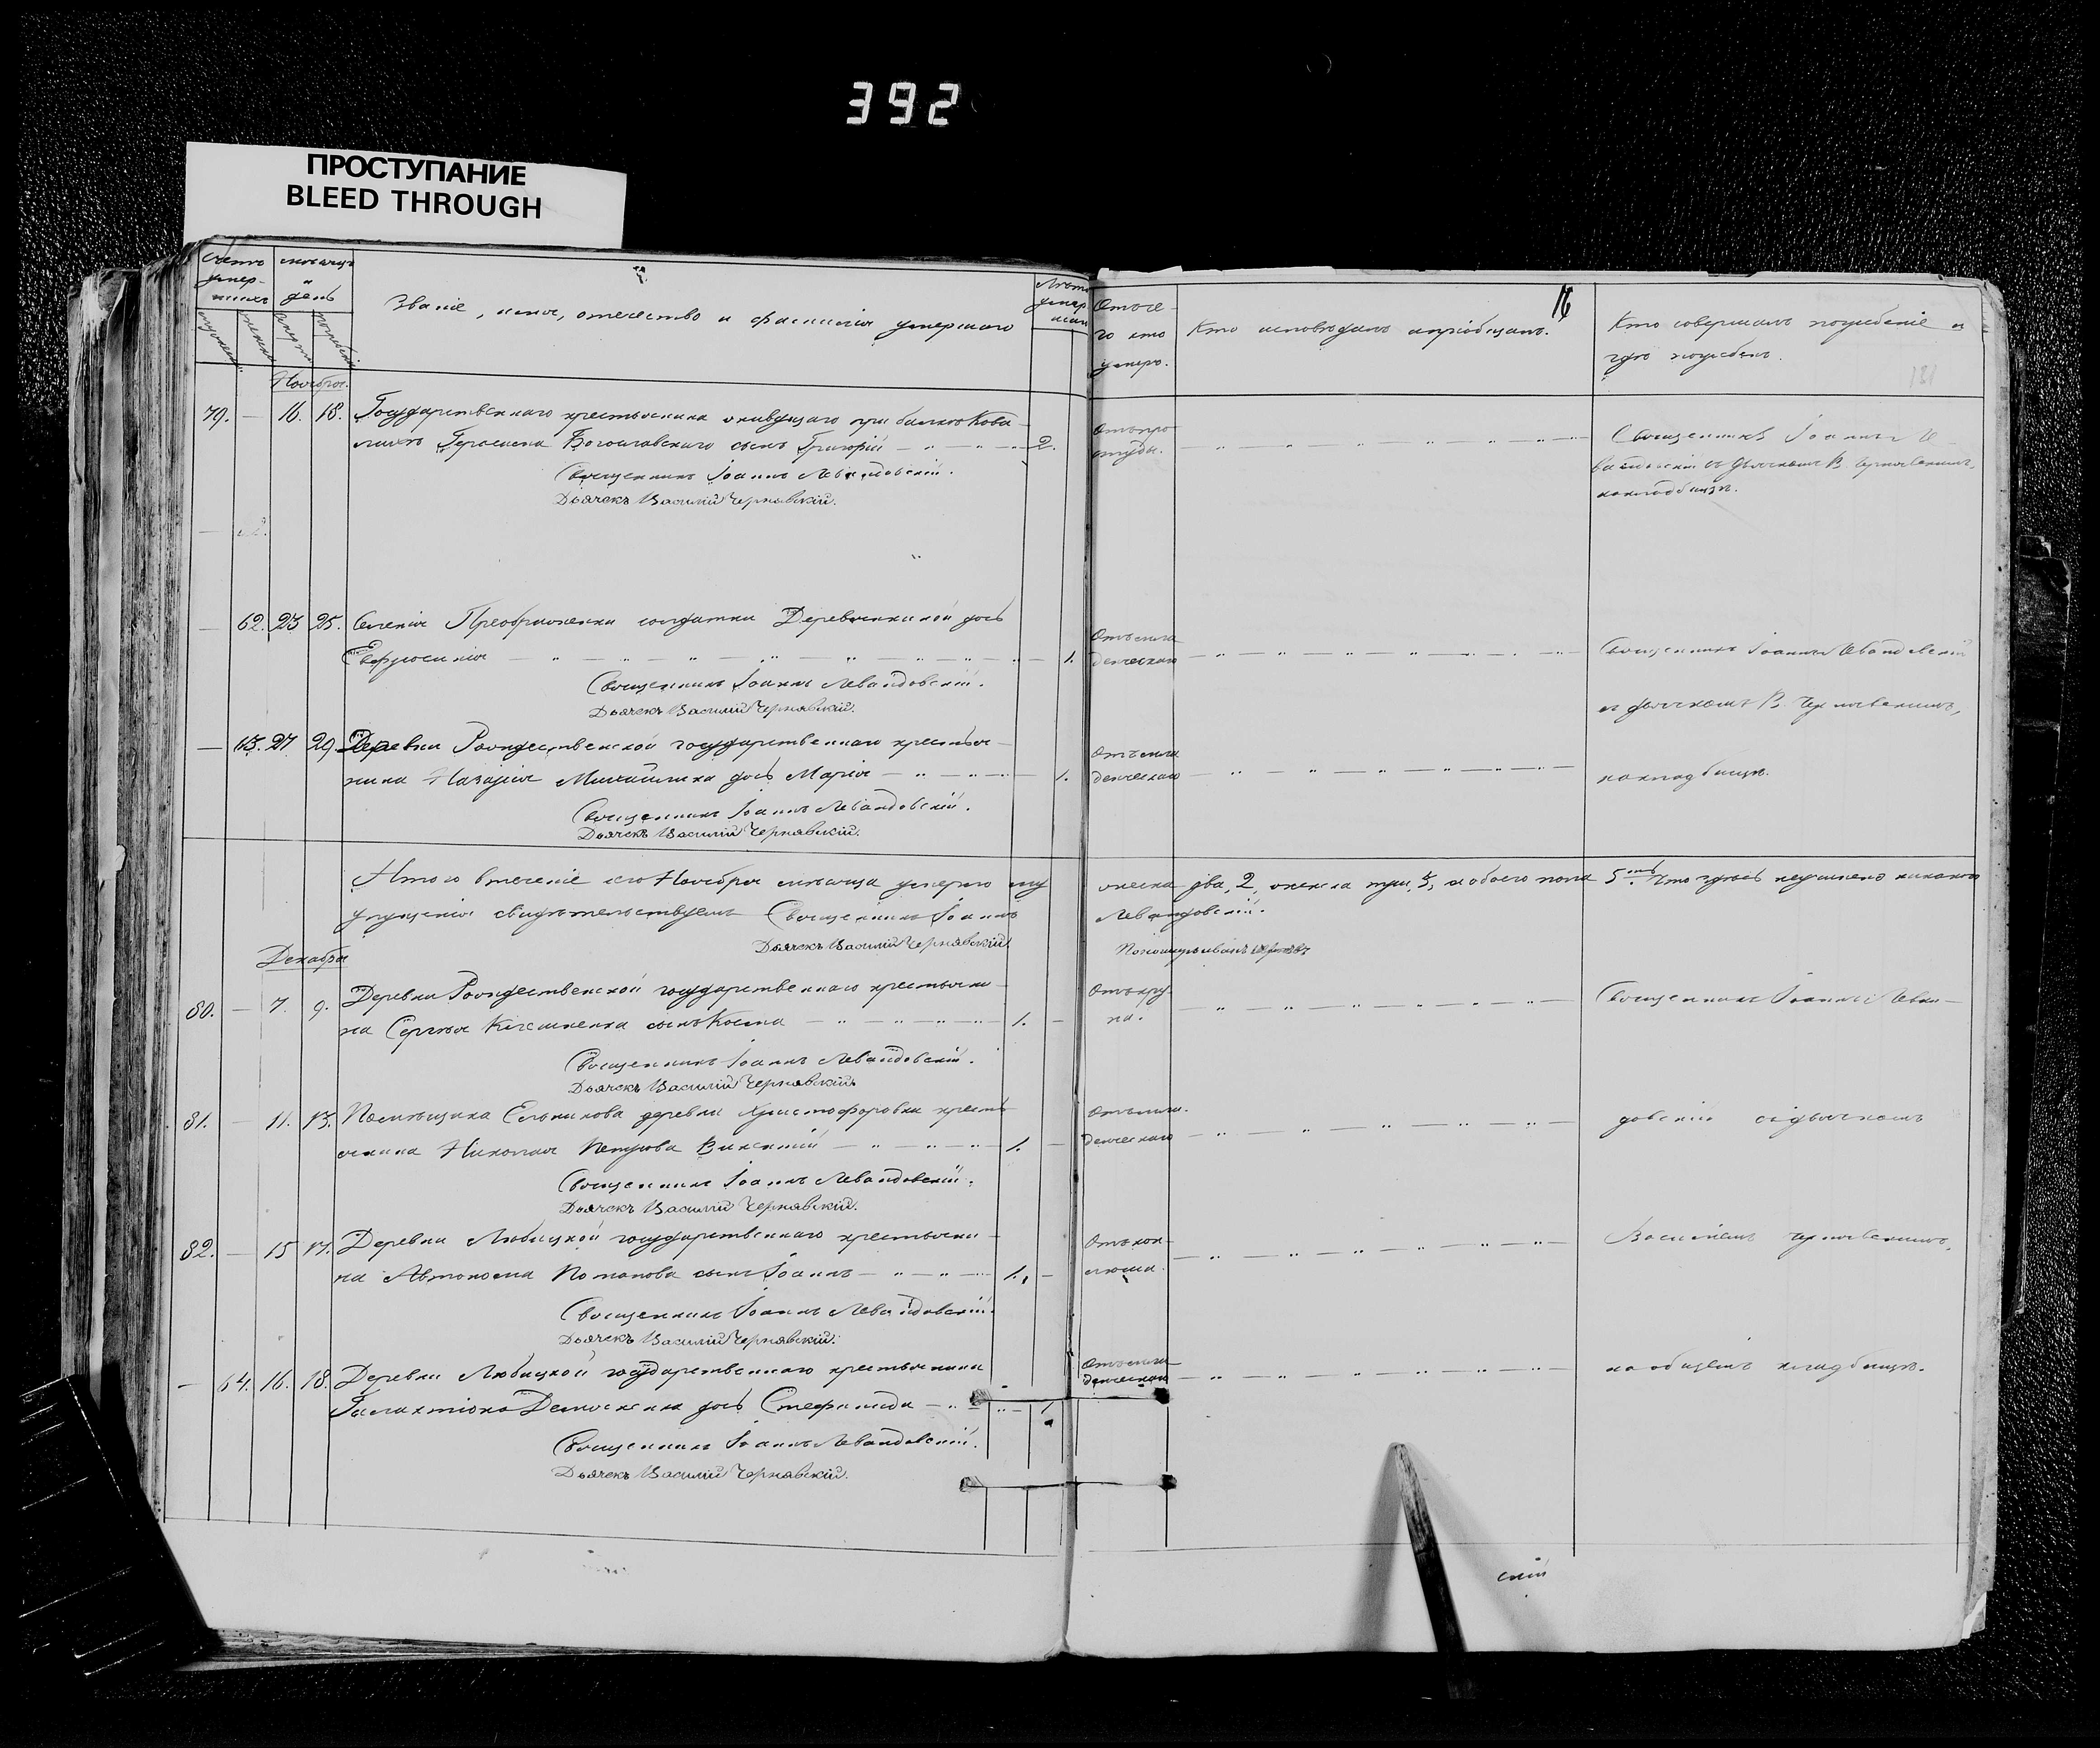 392
ПРОСТУПАНИЕ
BLEED THROUGH
Счетъ умер-шихъ
мѣсяцъ и день
Званіе, имя, отечество и фамилія умершаго
Лѣта умер-шаго
Отъ че-го кто умеръ.
Кто исповѣдалъ и пріобщалъ.
16
Кто совершалъ погребеніе и
гдѣ погребенъ.
131
Ноября.
79. — 16. 18. Государственнаго крестьянина живущаго при балкѣ
Герасима Богославскаго сынъ Григорій 2.
Отъ про-студы.
Священникъ Іоаннъ Левандовскій.
Дьячекъ Василій Чернявскій.
Священникъ Іоаннъ Ле-
вандовскій съ дьячкомъ В. Чернявскимъ,
на кладбищѣ.
— 62. 23 25. Селенія Преображенки солдатки Деревянкиной дочь
Евфросинія 1.
Отъ мла-денческаго
Священникъ Іоаннъ Левандовскій.
Дьячекъ Василій Чернявскій.
Священникъ Іоаннъ Левандовскій
съ дьячкомъ В. Чернявскимъ,
— 63. 27 29. Деревни Рождественской государственнаго крестья-
нина Назарія дочь Марія 1.
Отъ мла-денческаго
на кладбищѣ.
Священникъ Іоаннъ Левандовскій.
Дьячекъ Василій Чернявскій.
Итого въ теченіе сего Ноября мѣсяца умерло му
жеска два, 2, женска три, 3, а обоего пола 5ть. Что здѣсь неучинено никакого
упущенія свидѣтельствуемъ Священникъ Іоаннъ
Левандовскій.
Дьячекъ Василій Чернявскій
Декабря
80. — 7. 9. Деревни Рождественской государственнаго крестьяни-
на Сергѣя сынъ Косма 1. —
Священникъ Іоаннъ Леван-
Священникъ Іоаннъ Левандовскій.
Дьячекъ Василій Чернявскій
81. — 11. 13. Помѣщика деревни Христофоровки кресть-
янина Николая Петрова 1. —
Отъ мла-денческаго
довскій съ дьячкомъ
Священникъ Іоаннъ Левандовскій.
Дьячекъ Василій Чернявскій.
82. — 15 17. Деревни Любицкой государственнаго крестьяни-
на Автонома Потапова сынъ Іоаннъ 1. —
Отъ кок-люша.
Василіемъ Чернявскимъ,
Священникъ Іоаннъ Левандовскій.
Дьячекъ Василій Чернявскій.
— 64. 16. 18. Деревни Любицкой государственнаго крестьянина
Галактіона дочь Стефанида 1
Отъ мла-денческаго
на общемъ кладбищѣ.
Священникъ Іоаннъ Левандовскій.
Дьячекъ Василій Чернявскій.
скій